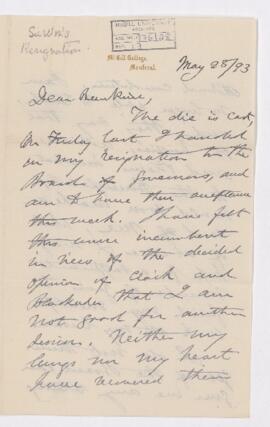 Resignation
McGILL UNIVERSITY
ARCHIVES
ACC. NO.
REF.
McGill College,
Montreal.
May 25/93
Dear
The die is cast,
On Friday last I handed
in my resignation to the
Board of Governors, and
am to have their acceptance
this week. I have felt
this course incumbent
in view of the decided
opinion of Clark and
that I am
not good for another
session. Neither my
lungs nor my heart
have recovered their